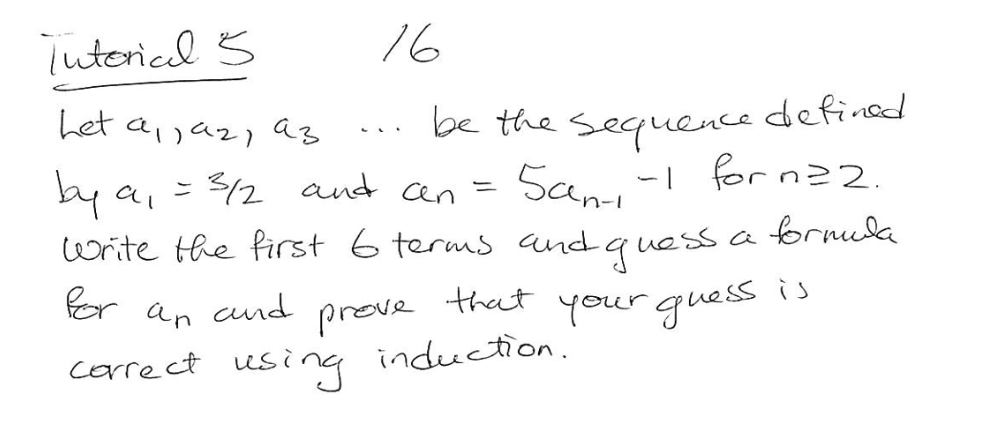 Tutorial 5 16
Let a₁, a₂, a₃ ... be the sequence defined
by a₁ = 3/2 and aₙ = 5aₙ₋₁ -1 for n≥2.
Write the first 6 terms and guess a formula
for aₙ and prove that your guess is
correct using induction.